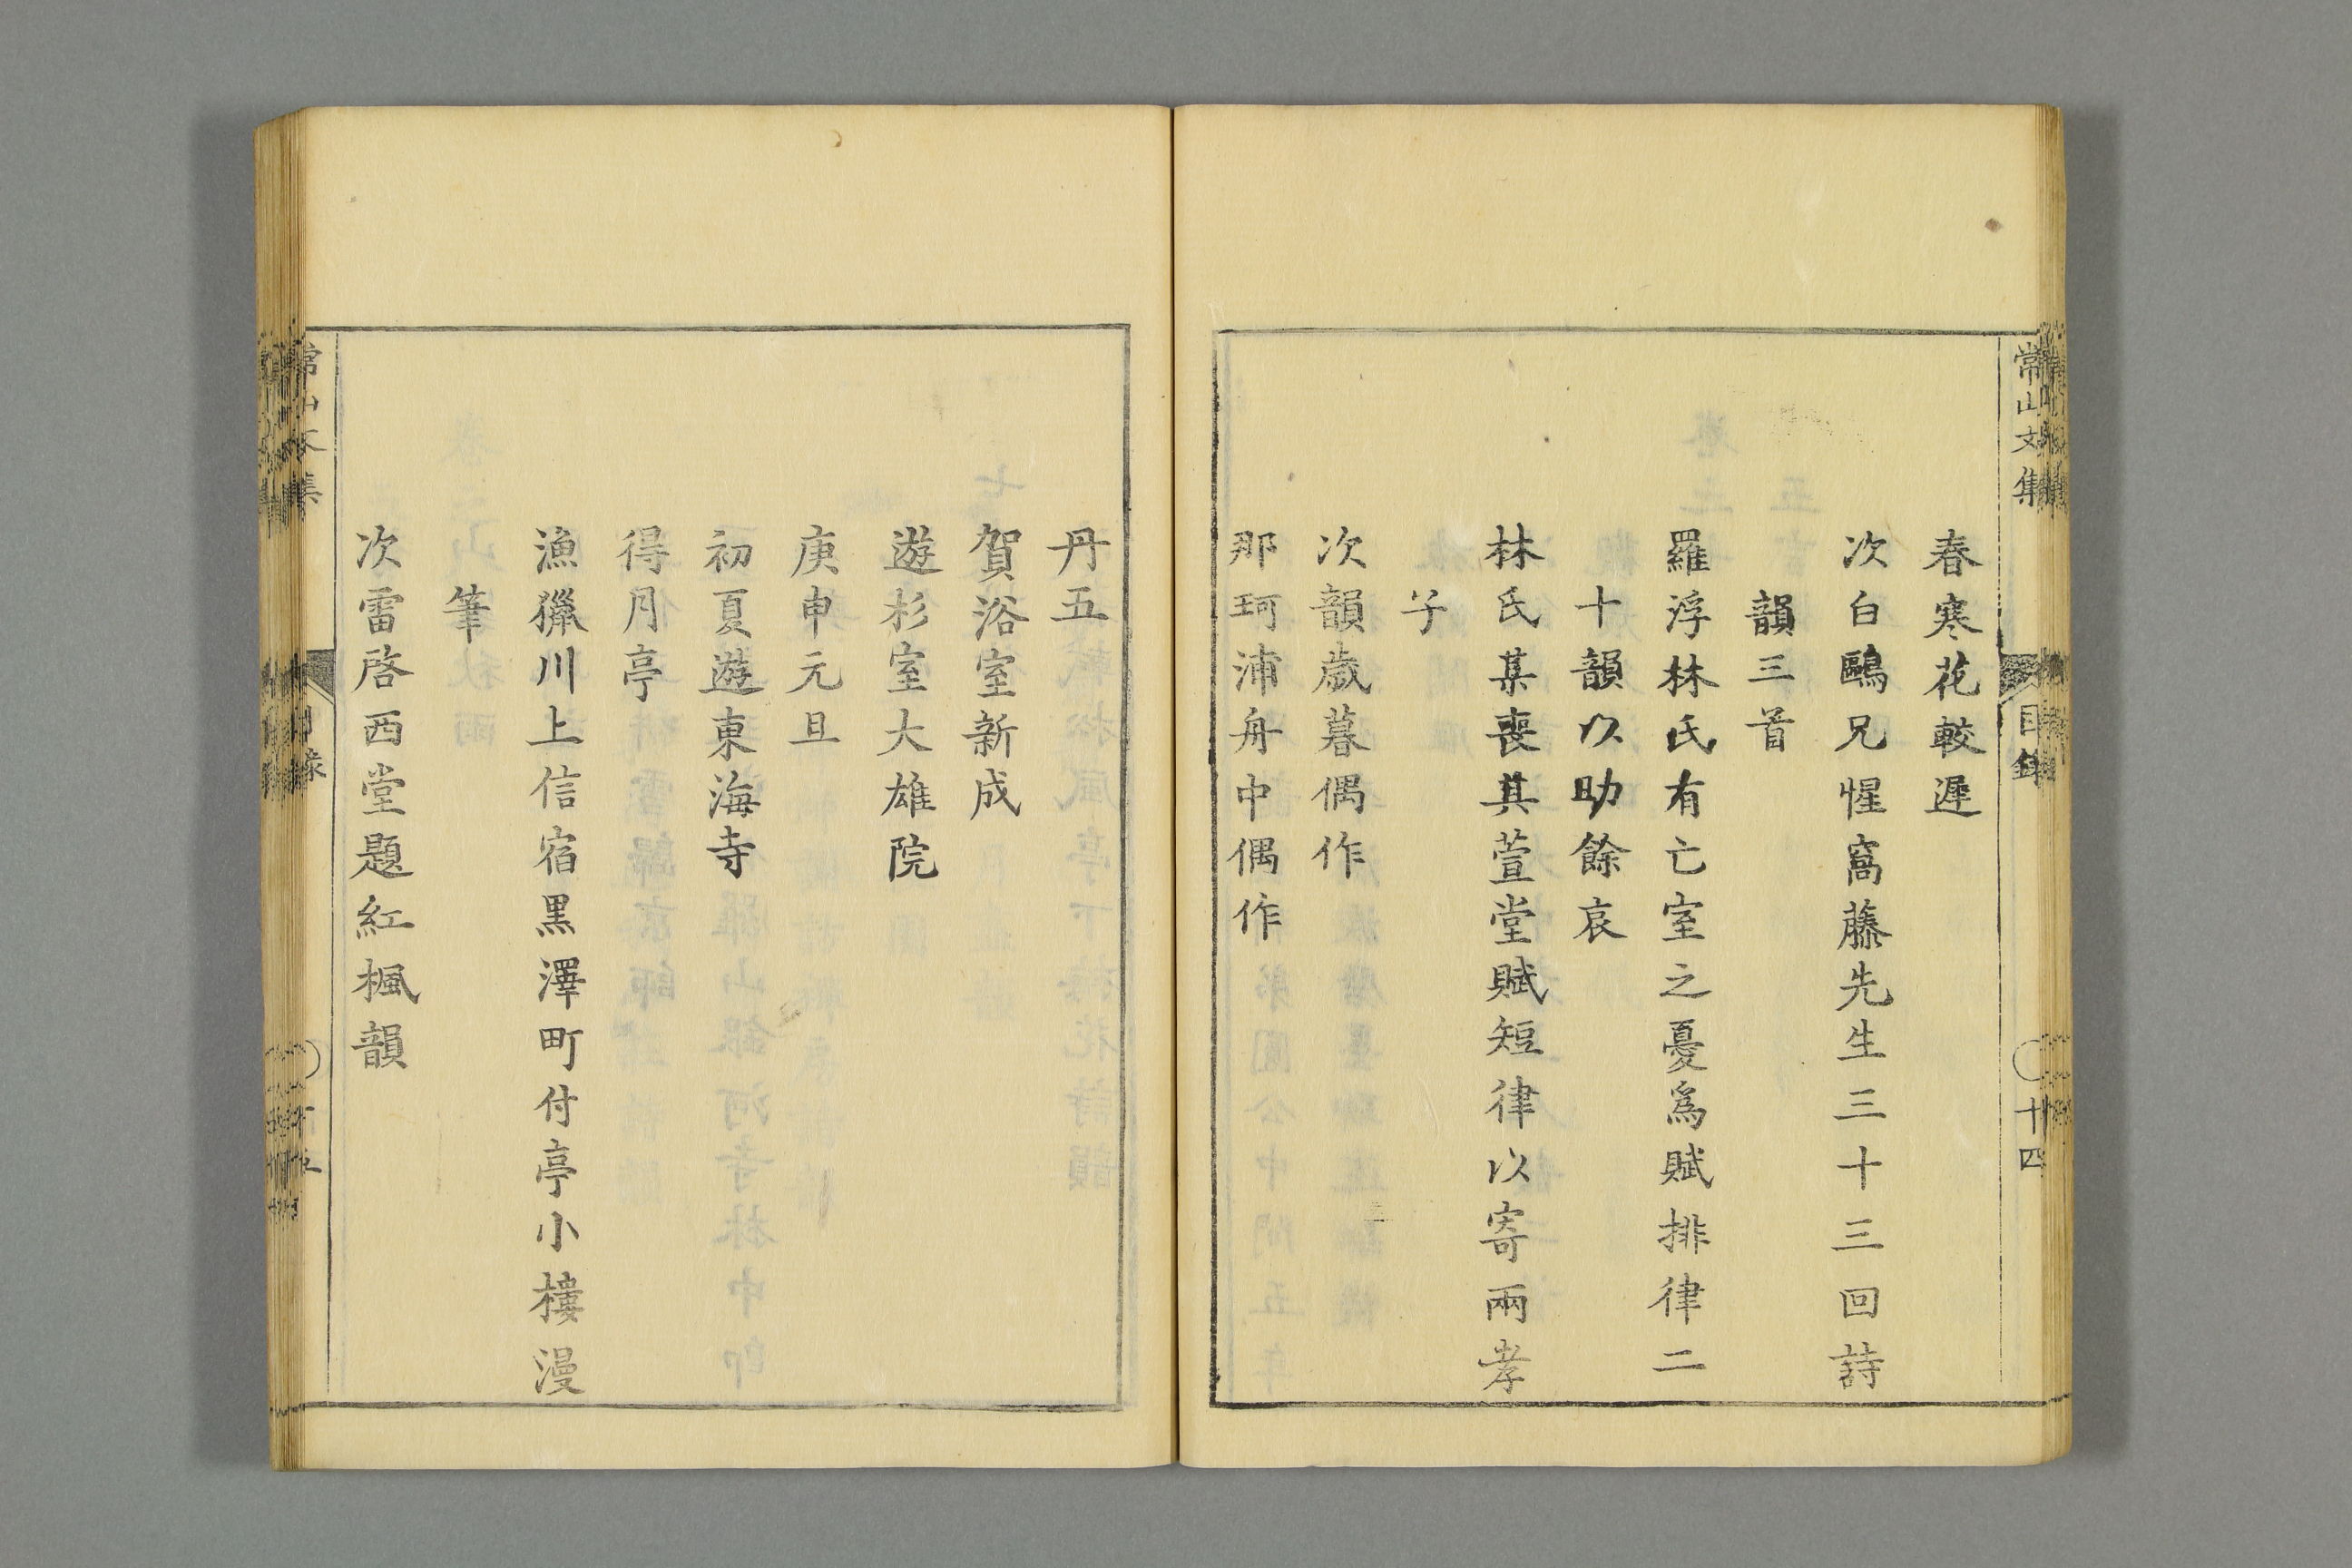 常山文集
目録
十四
春寒花較遲
次白鷗兄惺窩藤先生三十三回詩
韻三首
羅浮林氏有亡室之憂爲賦排律二
十韻以助餘哀
林氏某喪其萱堂賦短律以寄兩孝
子
次韻歳暮偶作
那珂浦舟中偶作
丹五
賀浴室新成
遊杉室大雄院
庚申元旦
初夏遊東海寺
得月亭
漁獵川上信宿黒澤町付亭小樓漫
筆
次雷啓西堂題紅楓韻
常山文集
目録